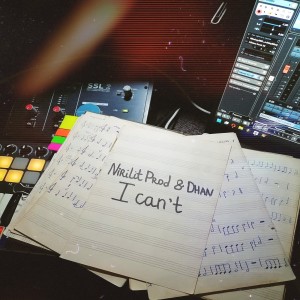 SSL
Nirilit Prod & Dhan
I can't